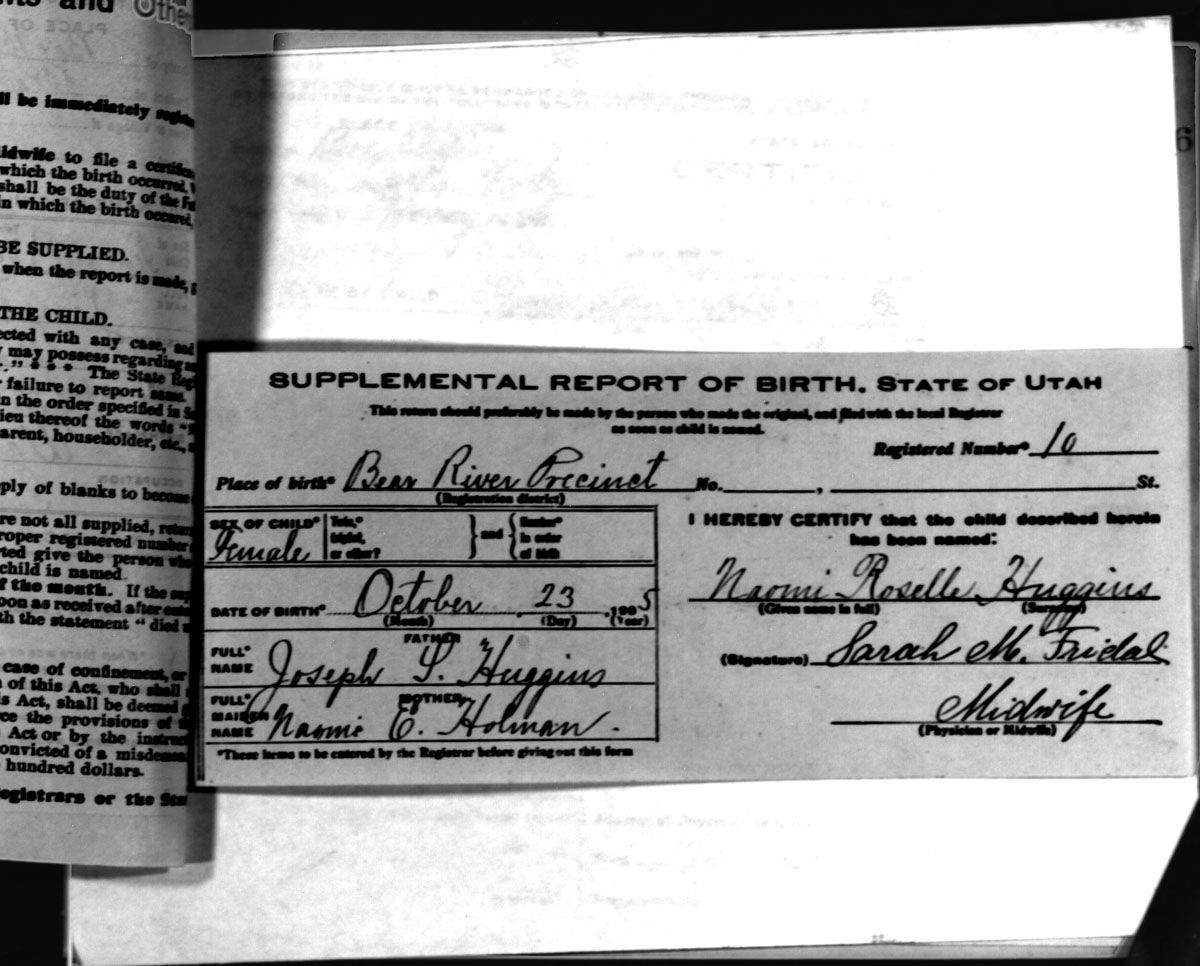 ts and Othe
ll be immediately regist
midwife to file a certific
which the birth occurred.
shall be the duty of the Fa
in which the birth occured,
BE SUPPLIED.
when the report is made,
THE CHILD.
ected with any case, and
y may possess regarding
." * * * The State Regi
failure to report
n the order specified in Se
lieu thereof the words "
arent, householder, etc.,
ply of blanks to become
re not all supplied, return
roper registered number
rted give the person who
child is named.
f the month. If the
oon as received after
th the statement "died
case of confinement, or
of this Act, who shall
is Act, shall be deemed
ce the provisions of
Act or by the instruc
onvicted of a misdemea
hundred dollars.
egistrars or the Stat
6
SUPPLEMENTAL REPORT OF BIRTH. STATE OF UTAH
This return should preferably be made by the person who made the original, and filed with the local Registrar
as soon as child is named.
Registered Number* 10
Place of birth* Bear River Precinct No. , St.
(Registration district)
SEX OF CHILD* Female Twin,* triplet, or other? } and { Number* in order of birth
DATE OF BIRTH* October 23 1905
(Month) (Day) (Year)
FATHER
FULL* NAME Joseph S. Huggins
MOTHER
FULL* MAIDEN NAME Naomi E. Holman.
*These items to be entered by the Registrar before giving out this form
I HEREBY CERTIFY that the child described herein
has been named:
Naomi Roselle Huggins
(Given name in full) (Surname)
(Signature) Sarah M. Fridal
Midwife
(Physician or Midwife)